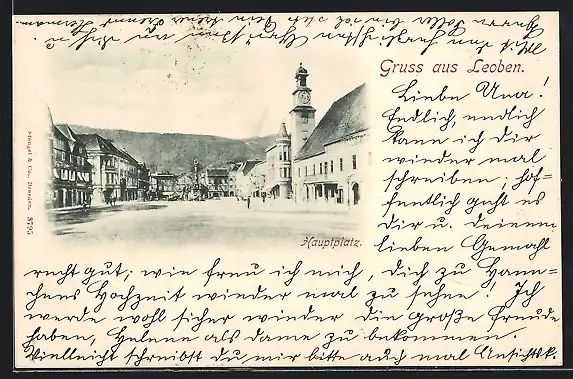 Gruss aus Leoben.
Liebe Una!
Endlich, endlich
kann ich Dir
wieder mal
schreiben; hof-
fentlich geht es
Dir u. deinem
lieben Gemahl
recht gut; wie freu ich mich, dich zu Hann-
chens Hochzeit wieder mal zu sehen! Ich
werde wohl sicher wieder die große Freude
haben, Helene als dame zu bekommen.
Vielleicht schreibst du mir bitte auch mal Ansichtsk.
Hauptplatz.
Stengel & Co., Dresden. 3795